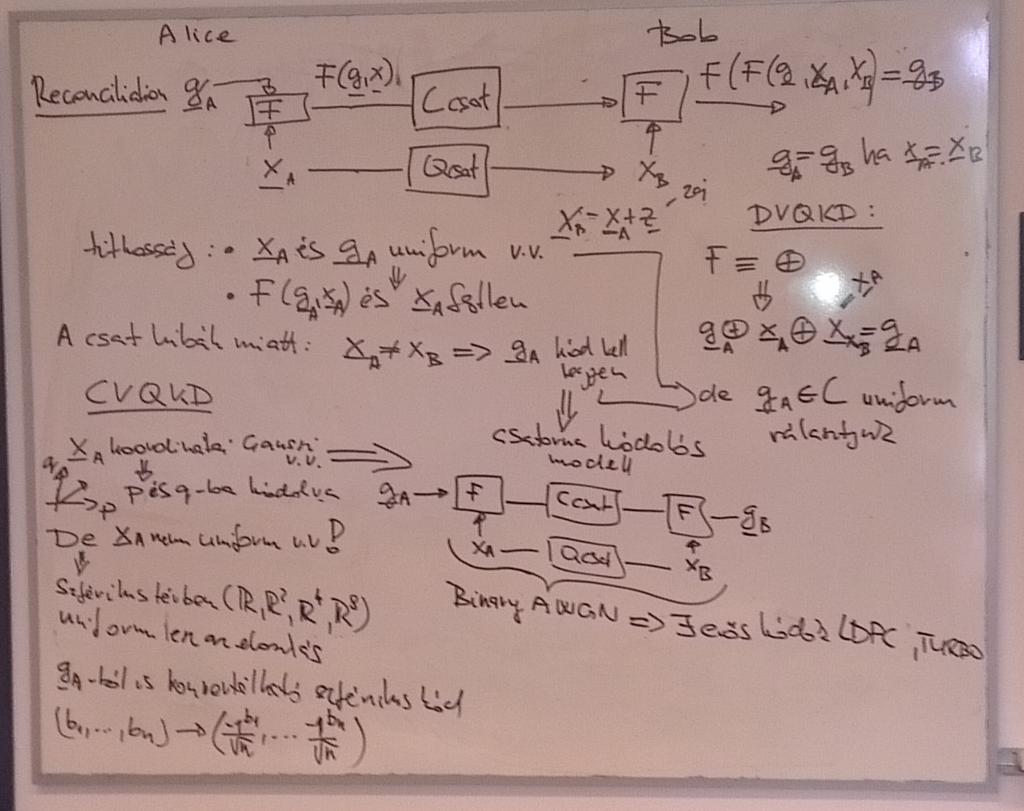 Alice
Bob
Reconciliation g_A F F(g,x) Ccsat F F(F(g,x_A,x_B)=g_B
x_A Qcsat x_B
g_A=g_B ha x_A=x_B
x_B=x_A+z zaj
DVQKD:
titkosság: • x_A és g_A uniform v.v.
F ≡ ⊕
⇓
• F(g_A,x_A) és x_A fgtlen
x_A
g_A ⊕ x_A ⊕ x_B = g_A
A csat hibák miatt: x_A ≠ x_B => g_A kód kell
legyen
de g_A ∈ C uniform
választjuk
⇓
csatorna kódolás
modell
CVQKD
x_A koordinátái Gauss-i
v.v.
q p
p és q-ba kódolva
g_A → F Ccsat F g_B
x_A Qcsat x_B
De x_A nem uniform v.v!
⇓
Szférikus térben (ℝ, ℝ², ℝ⁴, ℝ⁸)
uniform lesz az eloszlás
Binary AWGN => ∃ erős kódok LDPC, TURBO
g_A-ból is konvertálható szférikus kód
(b₁,...,bₙ) → (-1^b₁/√n, ... -1^bₙ/√n)